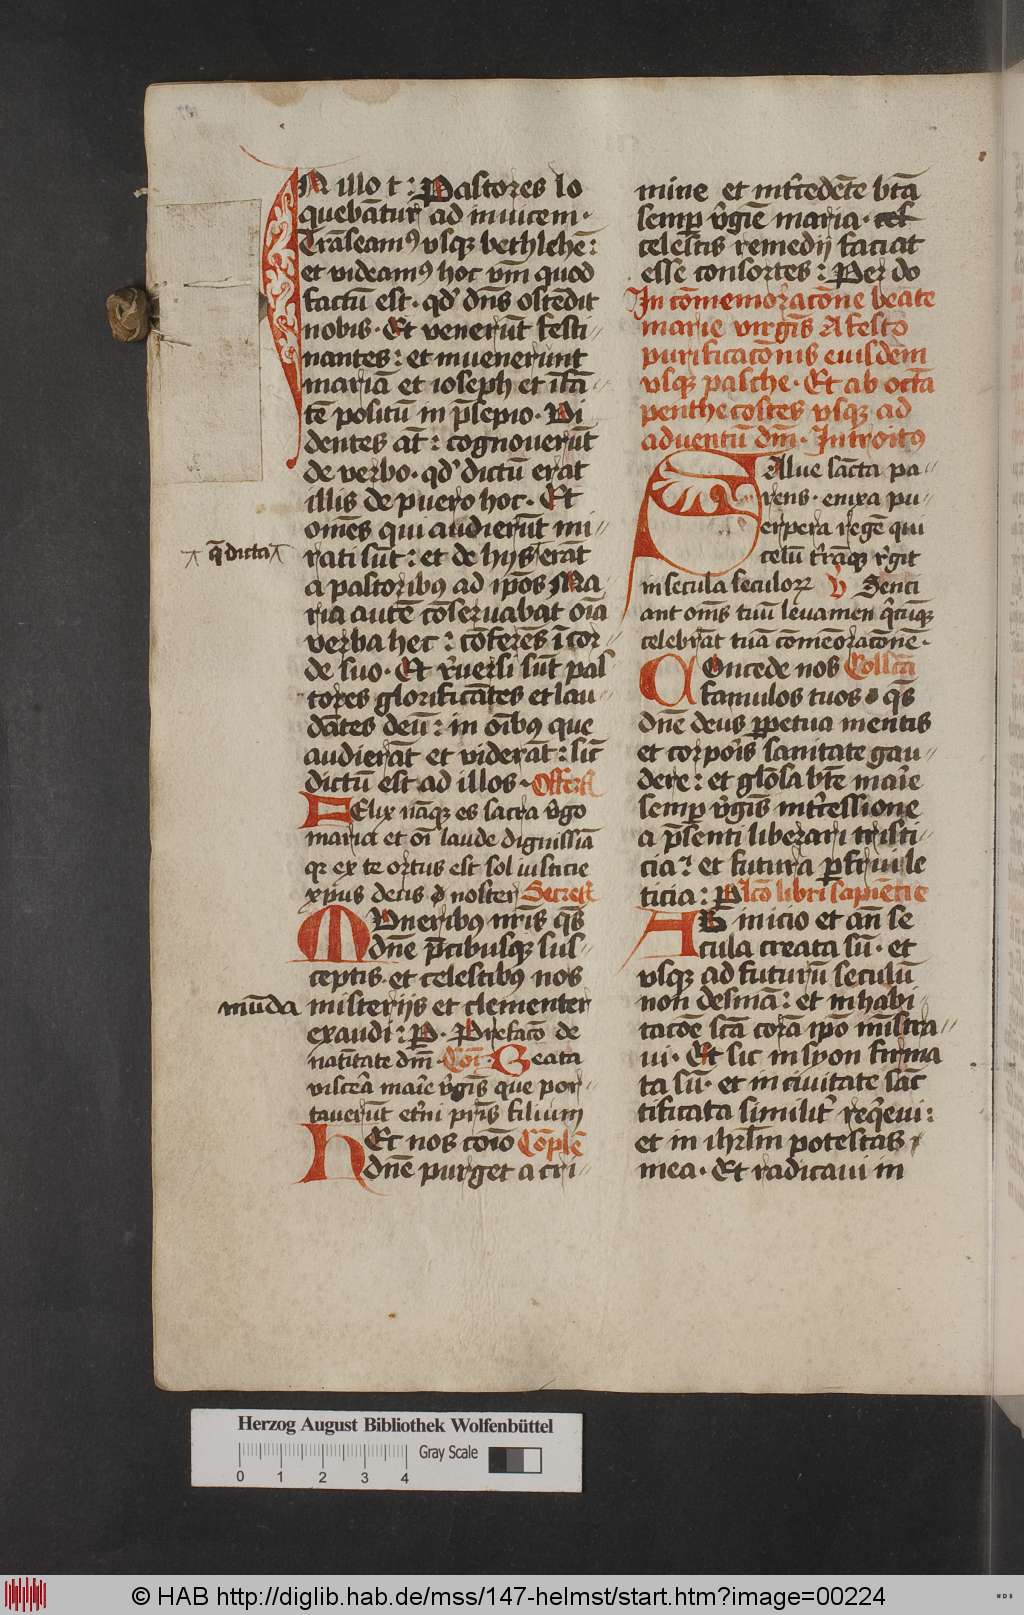 IN illo t: Pastores lo
quebāntur ad inuicem·
Trāseamꝰ vsqꝫ bethlehē:
et videamꝰ hoc vm̄ quod
factū est· qd' dn̄s ostēdit
nobis· Et venerūt festi-
nantes: et inuenerunt
mariā et ioseph et īfā-
tē positū in p̄sepio· Vi
dentes at̄: cognouerūt
de verbo· qd' dictū erat
illis de puero hoc· Et
om̄es qui audierūt mi-
qā dicta
rati sūt: et de hijs erāt
a pastoribus ad ip̄os Ma
ria autē cōseruabat oīa
verba hec: cōferēs ī cor-
de suo· Et r̄uersi sūt pas
tores glorificātes et lau-
dātes deū: in oībꝰ que
audierāt et viderāt: sic̄
dictū est ad illos· Offert
Felix nāqꝫ es sacra v̄go
maria et oī laude dignissīa
qꝛ ex te ortus est sol iusticie
xp̄us deus noster Secret
MUneribꝰ nr̄is qs̄
dn̄e p̄cibusqꝫ sus-
ceptis et celestibꝰ nos
mūda
misterijs et clementer
exaudi: P· Prefacō de
natītate dm̄ Coī· Beata
viscera marie v̄gīs que por-
tauerūt et̄ni pr̄is filium
HEc nos coīo Cōplē
dn̄e purget a cri-
mine et int̄cedēte btā
semp v̄gīe maria· cel
celestis remedij faciat
esse consortes: Per do
In cōmemoracōne beate
marie virgīs A festo
purificacōnis eiusdem
vsqꝫ pasche· Et ab octā
penthecostes vsqꝫ ad
aduentū dm̄· Introitꝰ
SAlue sācta pa-
rens· enixa pu-
erpera regē qui
celū t̄raqꝫ r̄git
in secula seculorꝝ V Senci
ant om̄s tuū leuamen q̄cūqꝫ
celebrāt tuā cōmemoracōnē·
COncede nos Collcā
famulos tuos qs̄
dn̄e deus ꝑpetua mentis
et corporis sanitate gau-
dere: et glōsa bt̄e marie
semp v̄gīs int̄cessione
a p̄senti liberari tristi-
cia: et futura ꝑfrui le
ticia: P lcō libri sapiēcie
AB inicio et an̄ se
cula creata sū· et
vsqꝫ ad futurū seculū
non desinā: et in habi-
tacōe scā corā ip̄o mīstra-
ui· Et sic in syon firma
ta sū· et in ciuitate sāc
tificata similit̄ reqeui:
et in ihrl̄m potestas
mea· Et radicaui in
Herzog August Bibliothek Wolfenbüttel
Gray Scale
0 1 2 3 4
© HAB http://diglib.hab.de/mss/147-helmst/start.htm?image=00224